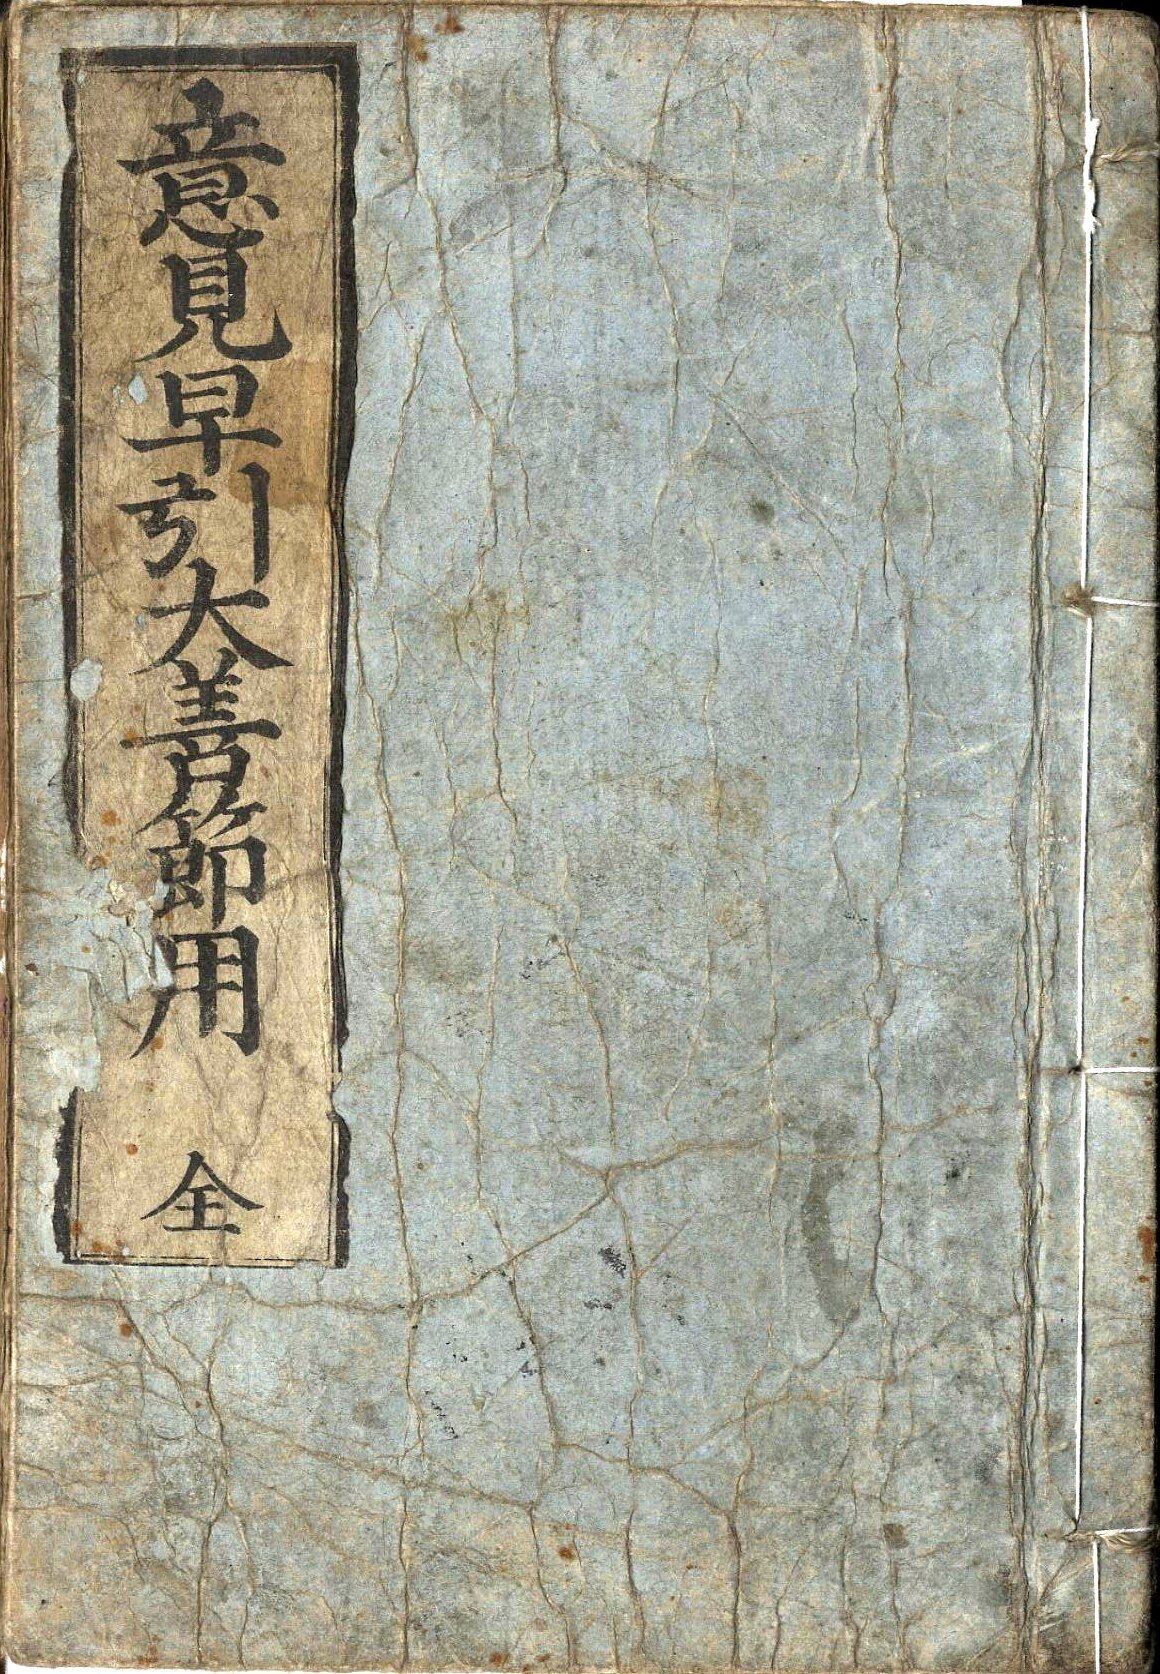 意見早引大善節用 全